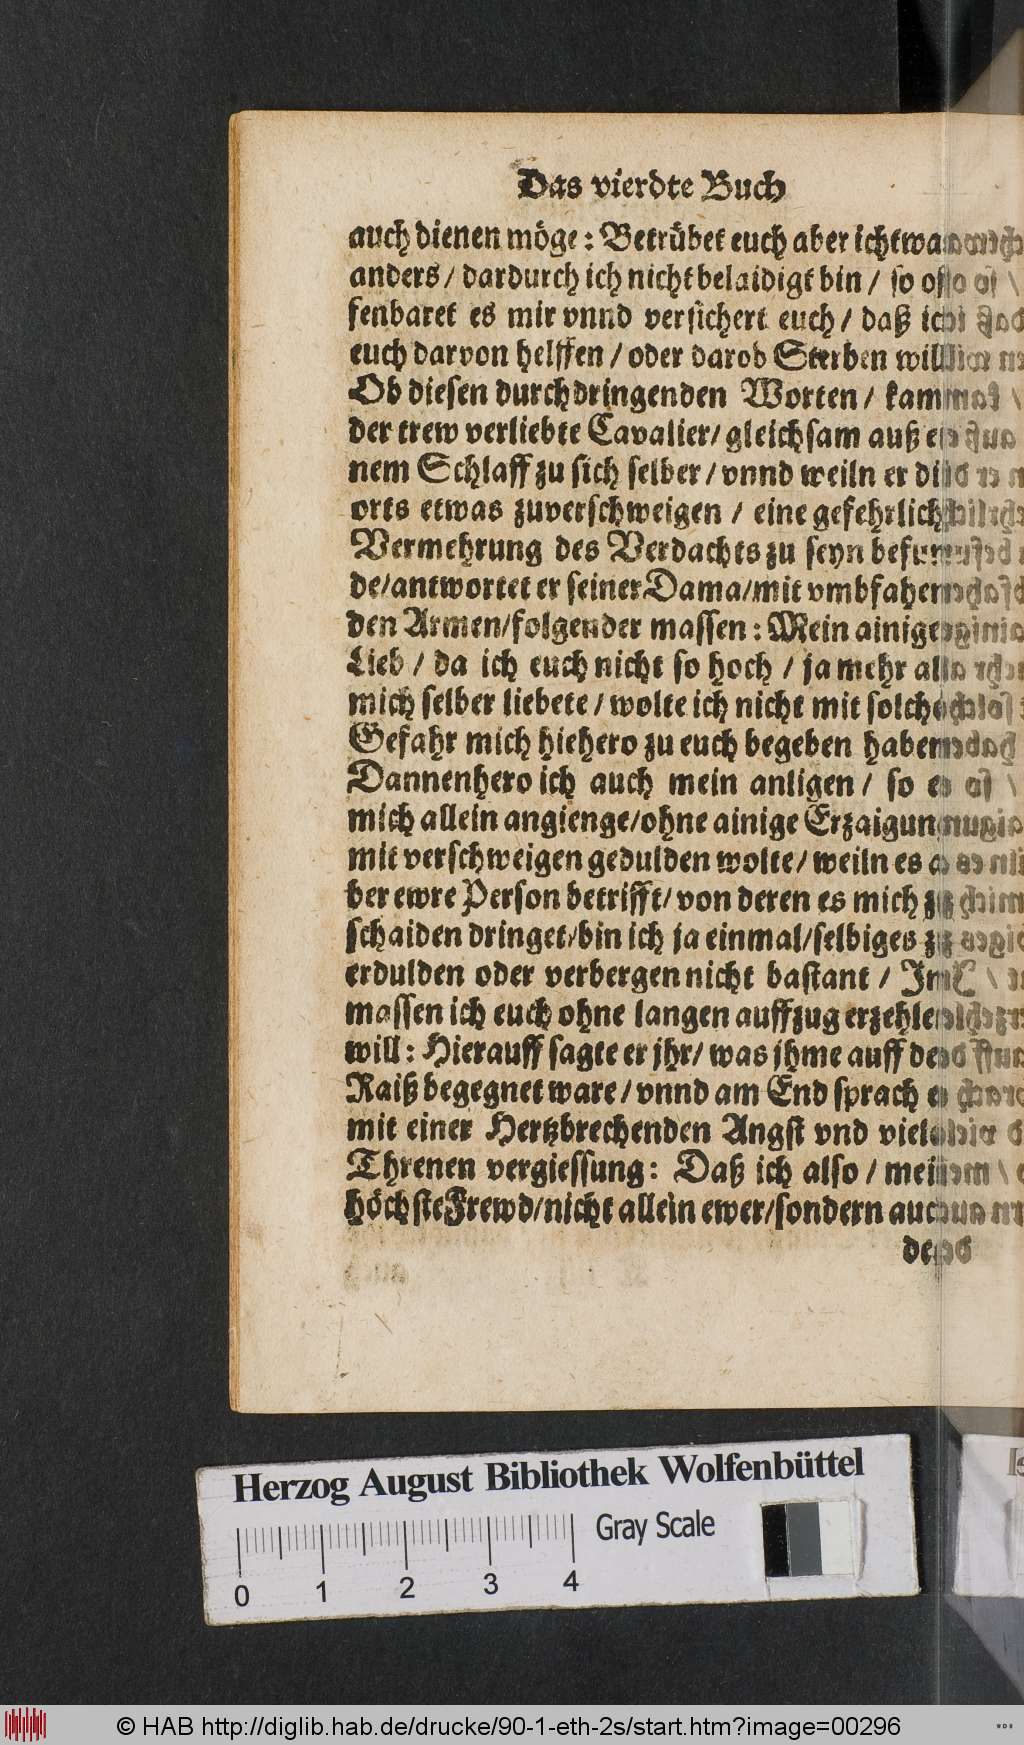 Das vierdte Buch
auch dienen möge: Betrübet euch aber ichtwa
anders/ dardurch ich nicht belaidigt bin/ so of
fenbaret es mir vnnd versichert euch/ daß ich
euch darvon helffen/ oder darob Sterben will
Ob diesen durchdringenden Worten/ kam
der trew verliebte Cavalier/ gleichsam auß
nem Schlaff zu sich selber/ vnnd weiln er
orts etwas zuverschweigen/ eine gefehrlich
Vermehrung des Verdachts zu seyn
de/antwortet er seiner Dama/mit vmbfahen
den Armen/folgender massen: Mein ainige
Lieb/ da ich euch nicht so hoch/ ja mehr
mich selber liebete/ wolte ich nicht mit solch
Gefahr mich hiehero zu euch begeben haben
Dannenhero ich auch mein anligen/ so es
mich allein angienge/ohne ainige Erzaigun
mit verschweigen gedulden wolte/ weiln es
ber ewre Person betrifft/ von deren es mich zu
schaiden dringet/bin ich ja einmal/selbiges zu
erdulden oder verbergen nicht bastant/ Im
massen ich euch ohne langen auffzug erzehle
will: Hierauff sagte er jhr/ was jhme auff
Raiß begegnet ware/ vnnd am End sprach er
mit einer Hertzbrechenden Angst vnd viel
Threnen vergiessung: Daß ich also/ mein
höchste Frewd/nicht allein ewer/sondern auch
Herzog August Bibliothek Wolfenbüttel
Gray Scale
0 1 2 3 4
© HAB http://diglib.hab.de/drucke/90-1-eth-2s/start.htm?image=00296